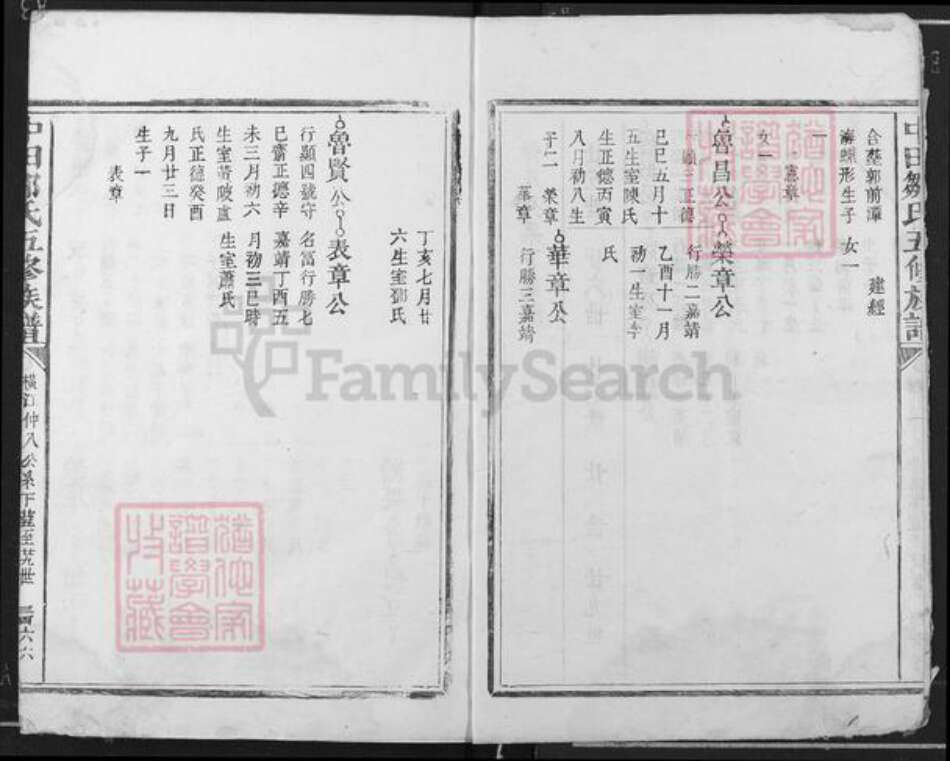 合塟郭前潭
海螺形生子
一
憲章
女一
建經
女一
魯昌公
榮章公
行顯三正德
巳巳五月十
五生室陳氏
生正德丙寅
八月初八生
子二
榮章
華章
行勝二嘉靖
乙酉十一月
初一生室李
氏
華章公
行勝三嘉靖
丁亥七月廿
六生室鄒氏
魯賢公
表章公
行顯四號守
巳齋正德辛
未三月初六
生室黃陂盧
氏正德癸酉
九月廿三日
生子一
表章
名富行勝七
嘉靖丁酉五
月初三巳時
生室蕭氏
中田鄒氏五修族譜
FamilySearch
譜學會
收藏